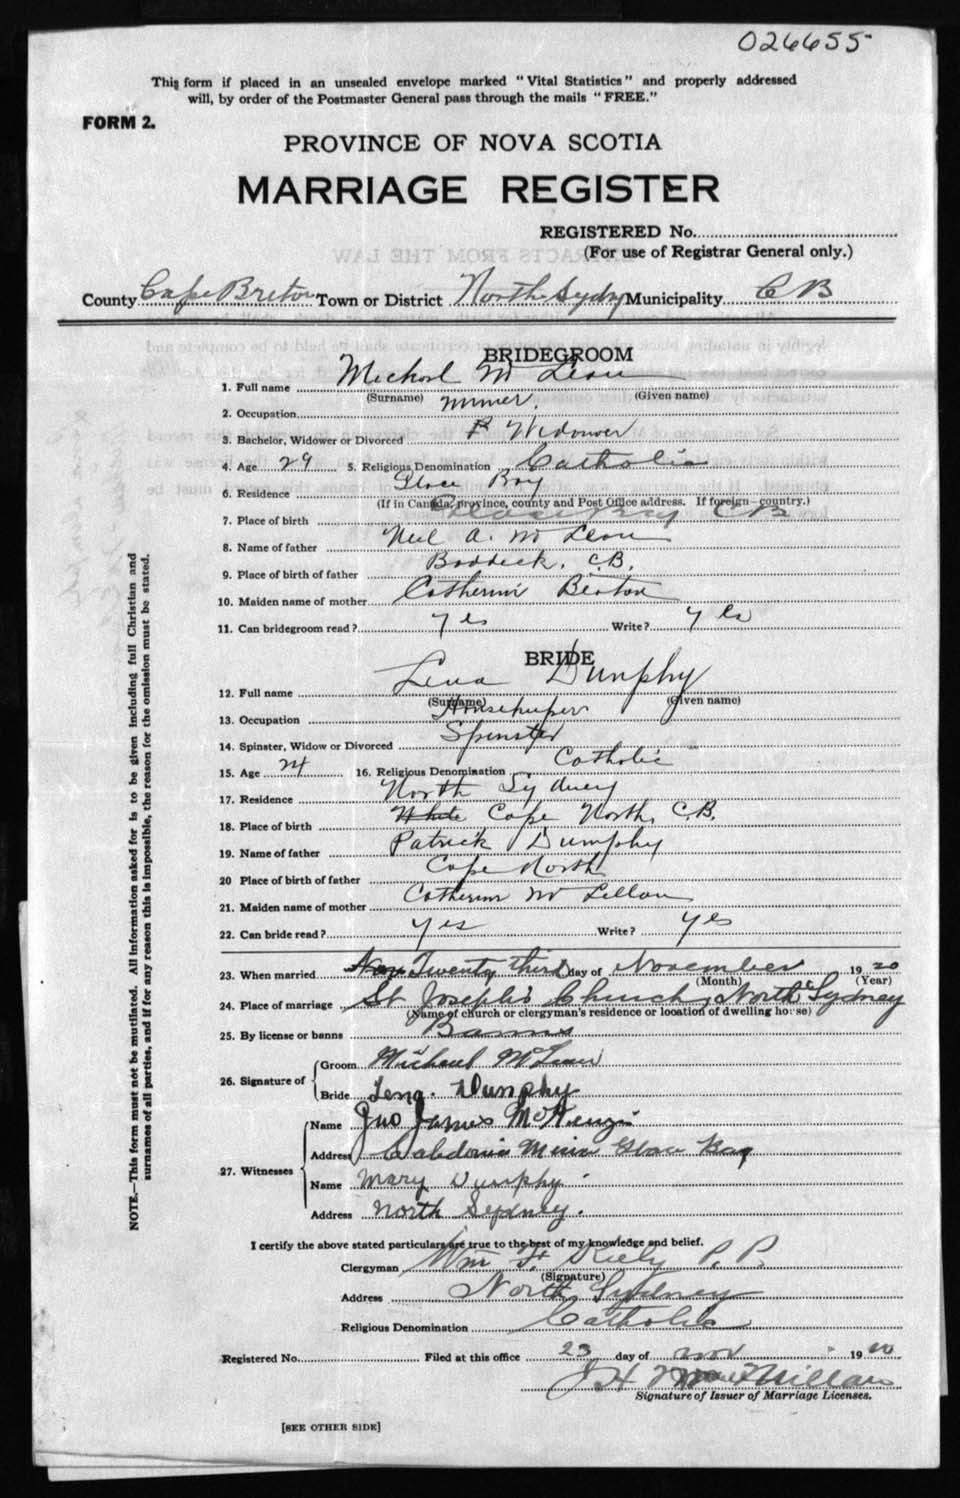 026655
This form if placed in an unsealed envelope marked "Vital Statistics" and properly addressed
will, by order of the Postmaster General pass through the mails "FREE."
FORM 2.
PROVINCE OF NOVA SCOTIA
MARRIAGE REGISTER
REGISTERED No.
(For use of Registrar General only.)
County Cape Breton Town or District North Sydney Municipality C B
BRIDEGROOM
1. Full name Michael Mc Lean
(Surname) (Given name)
2. Occupation Miner.
3. Bachelor, Widower or Divorced Widower
4. Age 29 5. Religious Denomination Catholic
6. Residence Glace Bay
(If in Canada, province, county and Post Office address. If foreign—country.)
7. Place of birth Glace Bay C B
8. Name of father Neil A. Mc Lean
9. Place of birth of father Baddeck, C.B.
10. Maiden name of mother Catherine Beaton
11. Can bridegroom read? Yes Write? Yes
BRIDE
12. Full name Lena Dunphy
(Surname) (Given name)
13. Occupation Housekeeper
14. Spinster, Widow or Divorced Spinster
15. Age 24 16. Religious Denomination Catholic
17. Residence North Sydney
18. Place of birth White Cape North, C.B.
19. Name of father Patrick Dumphy
20 Place of birth of father Cape North
21. Maiden name of mother Catherine Mc Lellan
22. Can bride read? Yes Write? Yes
23. When married Twenty third day of November 1920
(Month) (Year)
24. Place of marriage St Joseph's Church, North Sydney
(Name of church or clergyman's residence or location of dwelling house)
25. By license or banns Banns
26. Signature of Groom Michael McLean
Bride Lena Dunphy
27. Witnesses Name Jno James McKenzie
Address Caledonia Mines Glace Bay
Name Mary Dumphy
Address North Sydney.
I certify the above stated particulars are true to the best of my knowledge and belief.
Clergyman Wm F. Kiely P. P.
(Signature)
Address North Sydney
Religious Denomination Catholic
Registered No. Filed at this office 23 day of Nov 1920
J H McMillan
Signature of Issuer of Marriage Licenses.
[SEE OTHER SIDE]
NOTE.—This form must not be mutilated. All information asked for is to be given including full Christian and
surnames of all parties, and if for any reason this is impossible, the reason for the omission must be stated.